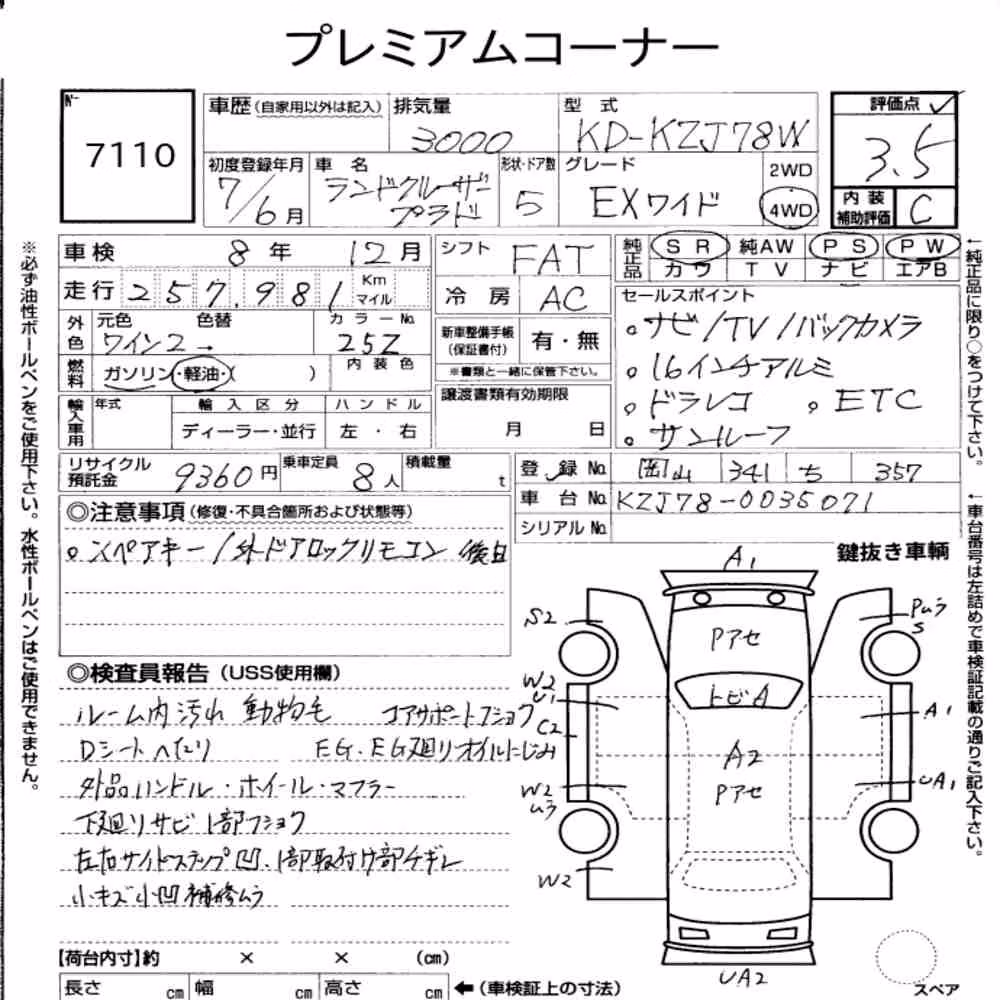 プレミアムコーナー
No
7110
車歴(自家用以外は記入)
排気量
3000
型 式
KD-KZJ78W
評価点
3.5
内装補助評価
C
初度登録年月
7/6月
車 名
ランドクルーザープラド
形状・ドア数
5
グレード
EXワイド
2WD
4WD
車検 8年 12月
走行 257,981 Km マイル
外色
元色
ワイン2→
色替
カラーNo.
25Z
燃料
ガソリン・軽油・( )
内装色
輸入車用
年式
輸入区分
ディーラー・並行
ハンドル
左・右
シフト
FAT
冷房
AC
新車整備手帳(保証書付)
有・無
※書類と一緒に保管下さい。
譲渡書類有効期限
月 日
純正品
SR 純AW PS PW
カワ TV ナビ エアB
セールスポイント
。ナビ/TV/バックカメラ
。16インチアルミ
。ドラレコ 。ETC
。サンルーフ
リサイクル預託金
9360円
乗車定員
8人
積載量
t
登録No.
岡山 341 ち 357
車台No.
KZJ78-0035071
シリアルNo.
◎注意事項(修復・不具合箇所および状態等)
。スペアキー/外ドアロックリモコン 後日
鍵抜き車輌
◎検査員報告(USS使用欄)
ルーム内汚れ 動物毛 コアサポートフショク
Dシートへたり EG・EG廻りオイルにじみ
外品ハンドル・ホイール・マフラー
下廻りサビ1部フショク
左右サイドステップ凹、1部取付け部チギレ
小キズ小凹補修ムラ
A1
S2
Pムラ
S
Pアセ
W2
U1
トビA
A1
C2
A2
Pアセ
W2
ムラ
UA1
W2
UA2
スペア
【荷台内寸】約 × × (cm)
長さ cm 幅 cm 高さ cm ←(車検証上の寸法)
※必ず油性ボールペンをご使用下さい。水性ボールペンはご使用できません。
←純正品に限り○をつけて下さい。
←車台番号は左詰めで車検証記載の通りご記入下さい。